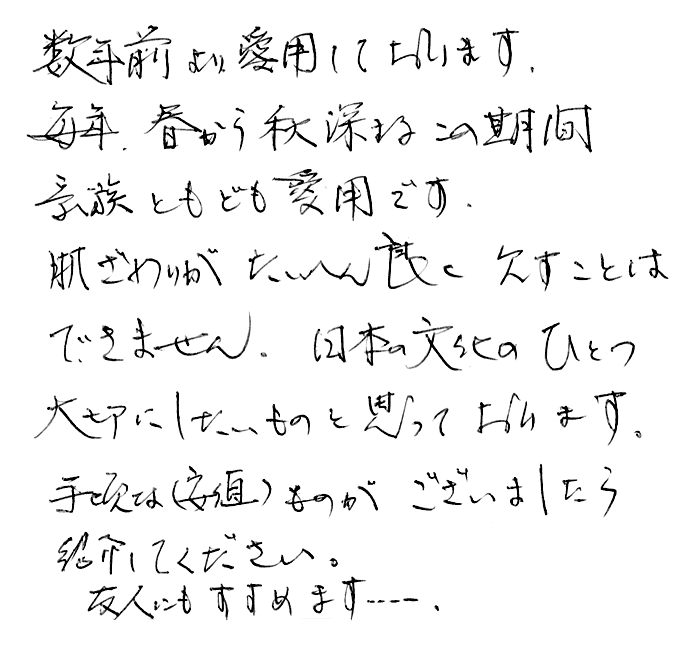 数年前より愛用しております.
毎年. 春から秋深まるこの期間
家族ともども愛用です.
肌ざわりがたいへん良く欠すことは
できません. 日本の文化のひとつ
大切にしたいものと思っております。
手頃な(安値)ものがございましたら
紹介してください。
友人にもすすめます----.